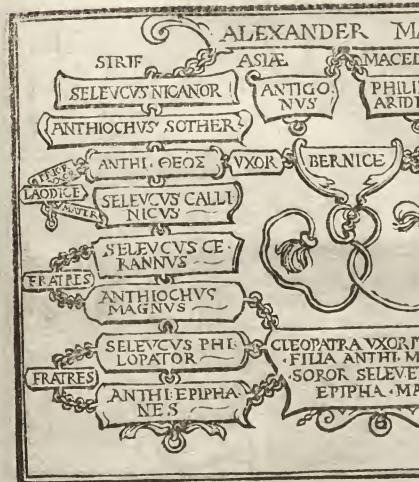 ALEXANDER MA
STRIF ASIÆ MACED
SELEVCVS NICANOR
ANTIGO·
NVS
PHILI
ARID
ANTHIOCHVS SOTHER
ANTHI·ΘΕΟΣ
VXOR
BERNICE
LAODICE
MATER
SELEVCVS CALLI
NICVS
SELEVCVS CE·
RANNVS
FRATRES
ANTHIOCHVS
MAGNVS
SELEVCVS PHI
LOPATOR
FRATRES
ANTHI·EPIPHA
NES
CLEOPATRA VXOR
·FILIA ANTHI·M
·SOROR SELEVE
EPIPHA·MA